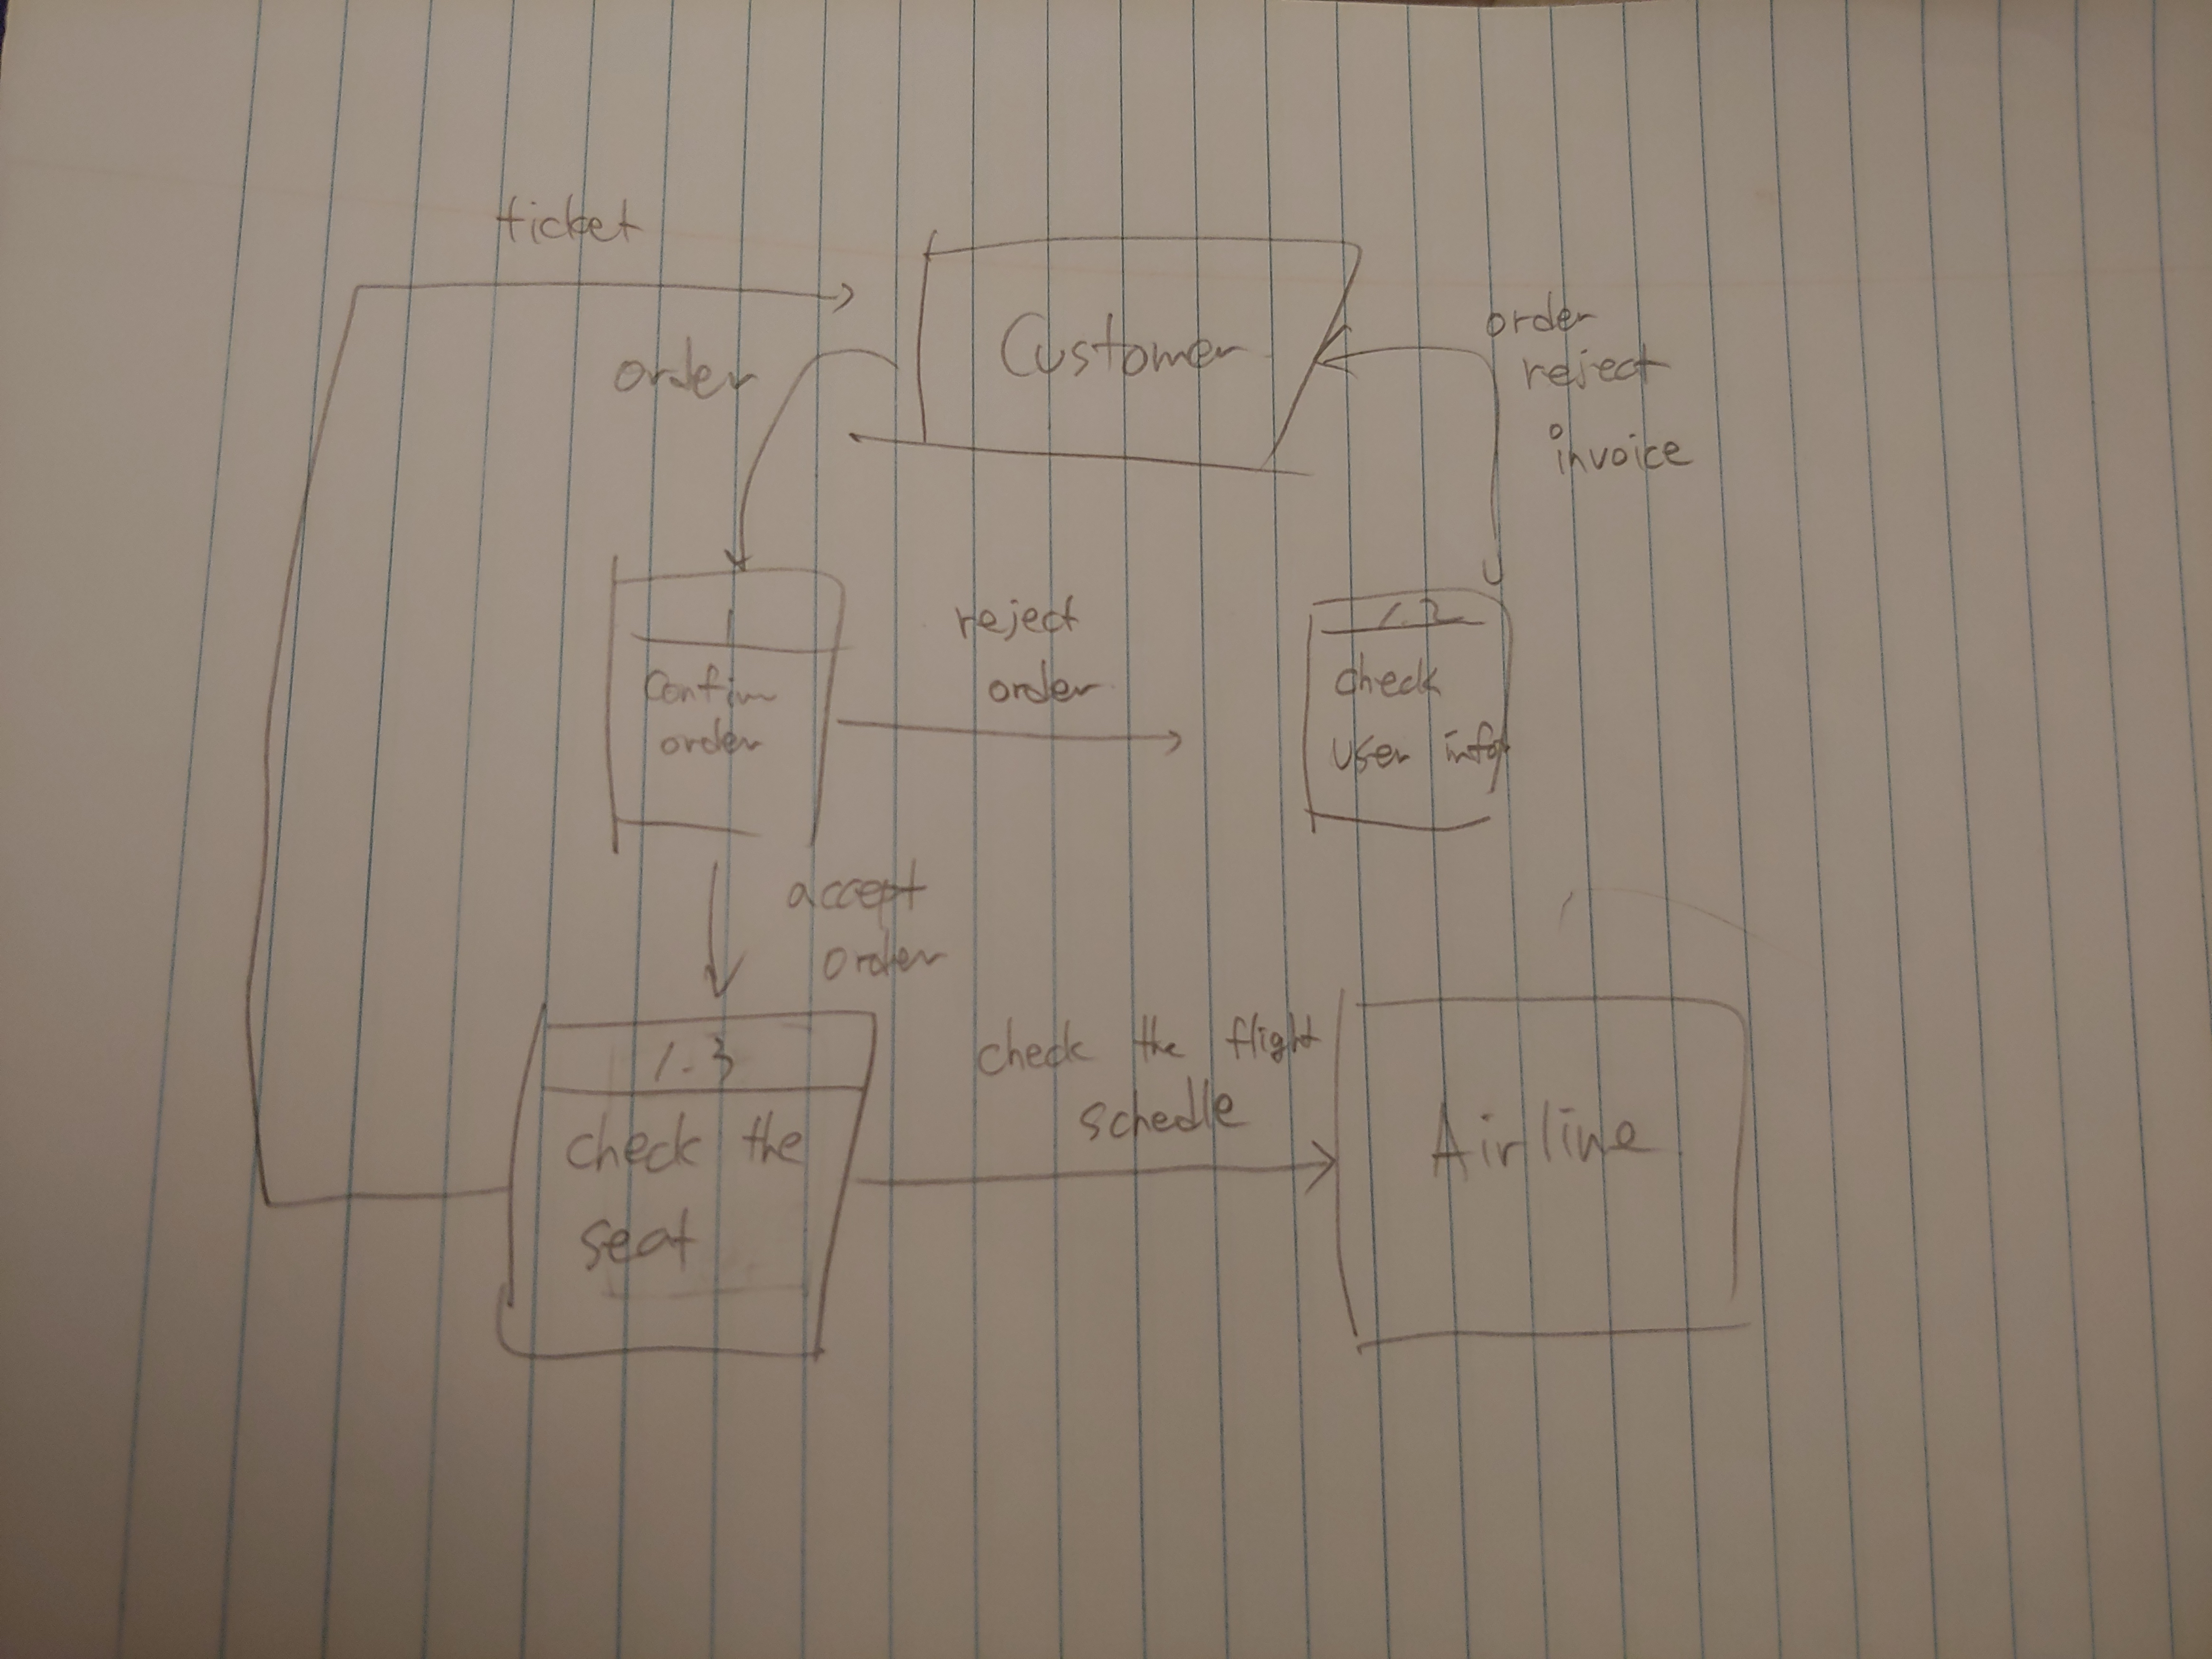 ticket
Customer
order
order
reject
invoice
1
Confirm
order
reject
order
1.2
check
user info
accept
order
1-3
check the
seat
check the flight
schedle
Airline